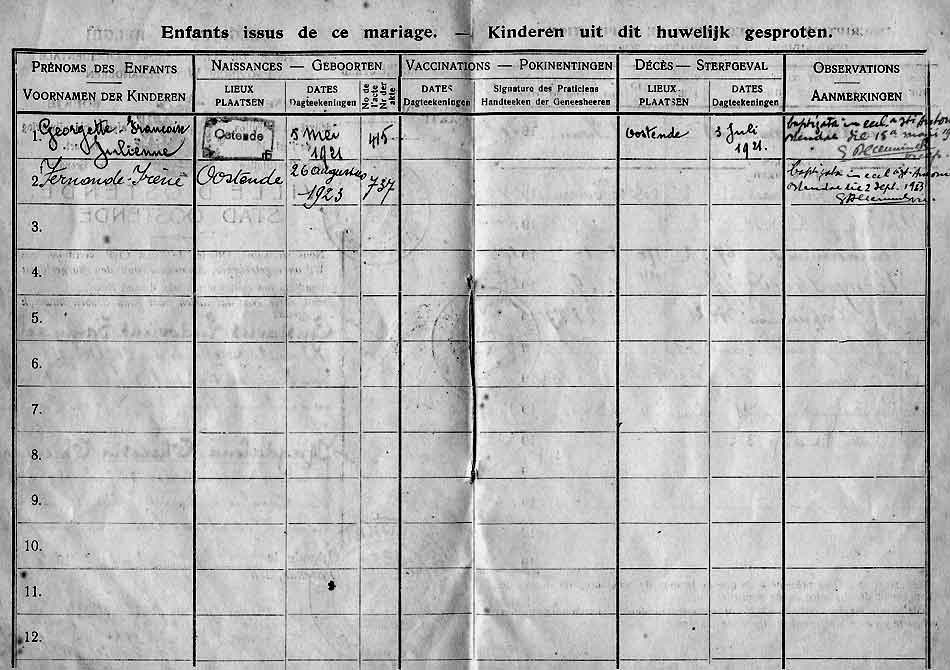 Enfants issus de ce mariage. — Kinderen uit dit huwelijk gesproten.
PRÉNOMS DES ENFANTS
VOORNAMEN DER KINDEREN
NAISSANCES — GEBOORTEN
LIEUX
PLAATSEN
DATES
Dagteekeningen
No de l'acte
Nr der akte
VACCINATIONS — POKINENTINGEN
DATES
Dagteekeningen
Signature des Praticiens
Handteeken der Geneesheeren
DÉCÈS — STERFGEVAL
LIEUX
PLAATSEN
DATES
Dagteekeningen
OBSERVATIONS
AANMERKINGEN
1. Georgette
Juliënne
Ostende
5 mei
1921
415
Oostende
3 Juli
1921.
baptizata in eccl.
2. Fernande-Irène
Oostende
26 augustus
1923
737
baptizata in eccl.
die 2 sept. 1923
3.
4.
5.
6.
7.
8.
9.
10.
11.
12.